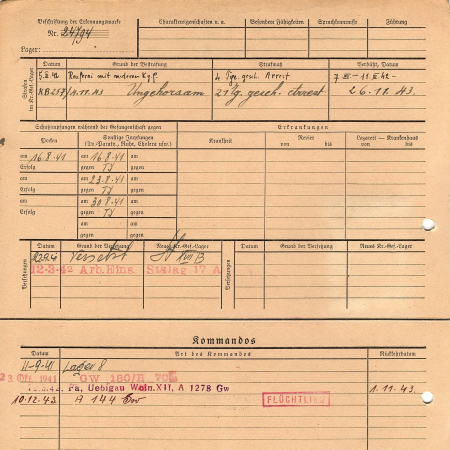 Beschriftung der Erkennungsmarke
Nr. 24794
Lager:
Charaktereigenschaften u. a.
Besondere Fähigkeiten
Sprachkenntnisse
Führung
Strafen im Kr.-Gef.-Lager
Datum
Grund der Bestrafung
Strafmaß
Verbüßt, Datum
Rauferei mit anderen Kgf.
4 Tge. gesch. Arrest
11.43 Ungehorsam
21 Tg. gesch. Arrest
26.11.43.
Schutzimpfungen während der Gefangenschaft gegen
Erkrankungen
Pocken
Sonstige Impfungen
(Ty.-Paraty., Ruhr, Cholera usw.)
Krankheit
Revier
von bis
Lazarett — Krankenhaus
von bis
am 16.8.41
am 16.8.41
am
Erfolg
gegen Ty
gegen
am
am 23.8.41
am
Erfolg
gegen Ty
gegen
am
am 30.8.41
am
Erfolg
gegen Ty
gegen
am
am
gegen
gegen
Versetzungen
Datum
Grund der Versetzung
Neues Kr.-Gef.-Lager
Versetzungen
Datum
Grund der Versetzung
Neues Kr.-Gef.-Lager
Versetzt
XVII B
12-3-42 Arb.Eins. Stalag 17 A
Kommandos
Datum
Art des Kommandos
Rückkehrdatum
11-9-41 Lager 8
23. Okt. 1941 GW 180/B
Fa. Uebigau Wien.XII, A 1278 Gw
1.11.43.
10.12.43. A 144 Gw
FLÜCHTLING